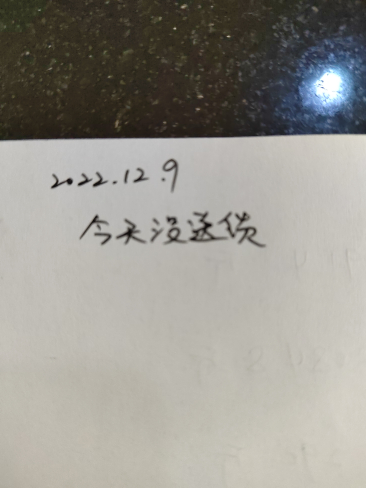 2022.12.9
今天没送货